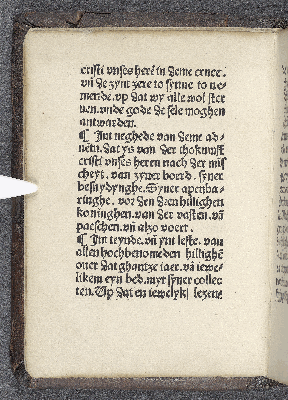 cristi vnses herē in deme cruce.
vñ de zynt zere to synne to ne-
mende. vp dat wy alle wol ster
uen. vnde gode de sele moghen
antwarden.
¶ Int neghede van deme ad-
uētū. dat ys van der thokunst
cristi vnses heren nach der mis
cheyt. van zyner boerd. syner
besnydynghe. Syner apenba-
ringhe. vor den dren hillighen
koninghen. van der vasten. vñ
paeschen. vñ alzo voert.
¶ Int teynde. vñ yn leste. van
allen hochbenomeden hillighē
ouer dat ghantze iaer. vā iewe-
likem eyn bed. myt syner collec
ten. Vp dat en iewelyk lezen-